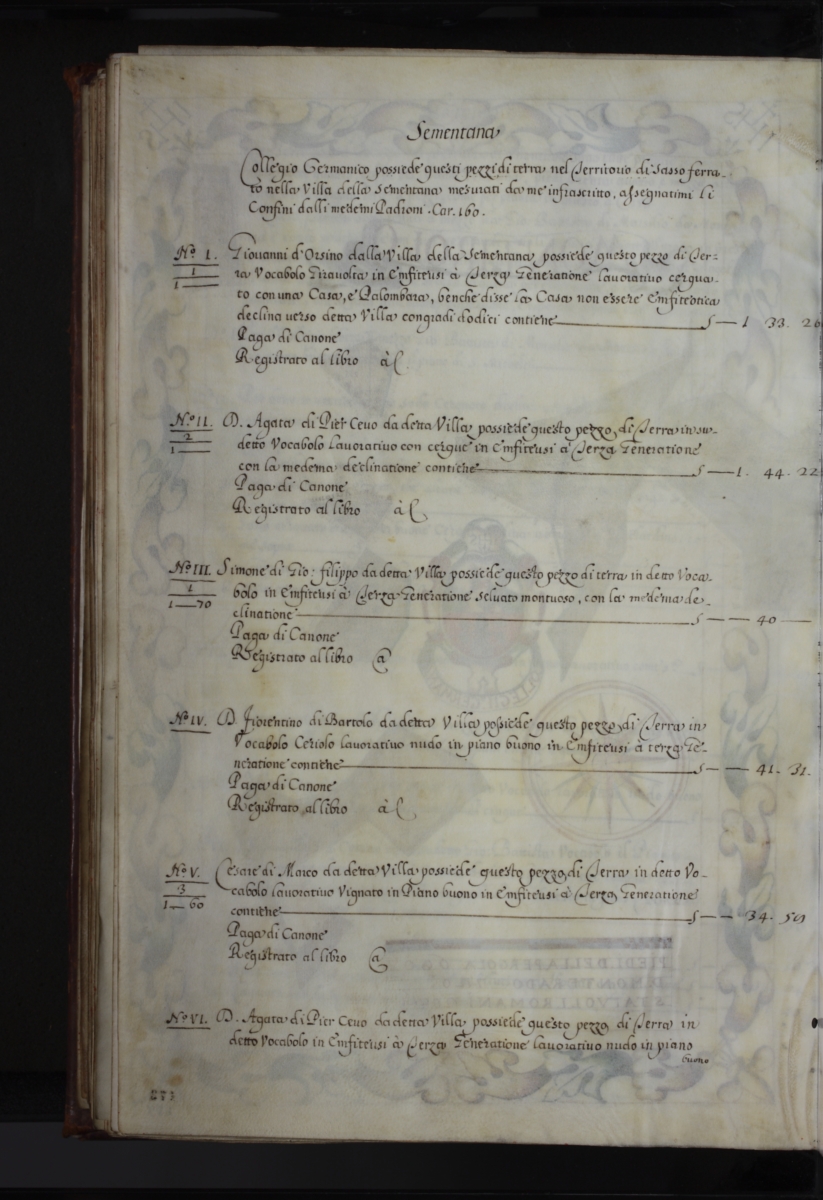 Sementana
Collegio Germanico possiede questi pezzi di terra nel Territorio di Sasso ferra-
to nella Villa della Sementana mesurati da me infrascritto, assegnatimi li
Confini dalli medemi Padroni. Car. 160.
N.o I. Giovanni d'Orsino dalla Villa della Sementana possiede questo pezzo di Ter-
1
1
ra Vocabolo Giravolta in Emfiteusi à Terza Generatione lavorativo cerqua-
to con una Casa, e Palombara, benche disse la Casa non essere Emfiteotica
declina verso detta Villa con gradi dodici contiene S — 1 33. 26
Paga di Canone
Registrato al libro à C
N.o II. D. Agata di Pier Ceuo da detta Villa possiede questo pezzo di Terra in su-
2
1
detto Vocabolo Lavorativo con cerque in Emfiteusi à Terza Generatione
con la medema declinatione contiene S — 1. 44. 22
Paga di Canone
Registrato al libro à C
N.o III. Simone di Gio: filippo da detta Villa possiede questo pezzo di terra in detto Voca-
1
1 — 70
bolo in Emfiteusi à Terza Generatione selvato montuoso, con la medema de-
clinatione S — — 40 —
Paga di Canone
Registrato al libro a
N.o IV. D. Fiorentino di Bartolo da detta Villa possiede questo pezzo di Terra in
Vocabolo Ceriolo lavorativo nudo in piano buono in Emfiteusi à terza Ge-
neratione contiene S — — 41. 31.
Paga di Canone
Registrato al libro à C
N.o V. Cesare di Marco da detta Villa possiede questo pezzo di Terra in detto Vo-
3
1 — 60
cabolo lavorativo Vignato in Piano buono in Emfiteusi à Terza Generatione
contiene S — — 34. 59
Paga di Canone
Registrato al libro a
N.o VI. D. Agata di Pier Ceuo da detta Villa possiede questo pezzo di Terra in
detto Vocabolo in Emfiteusi à Terza Generatione lavorativo nudo in piano
buono